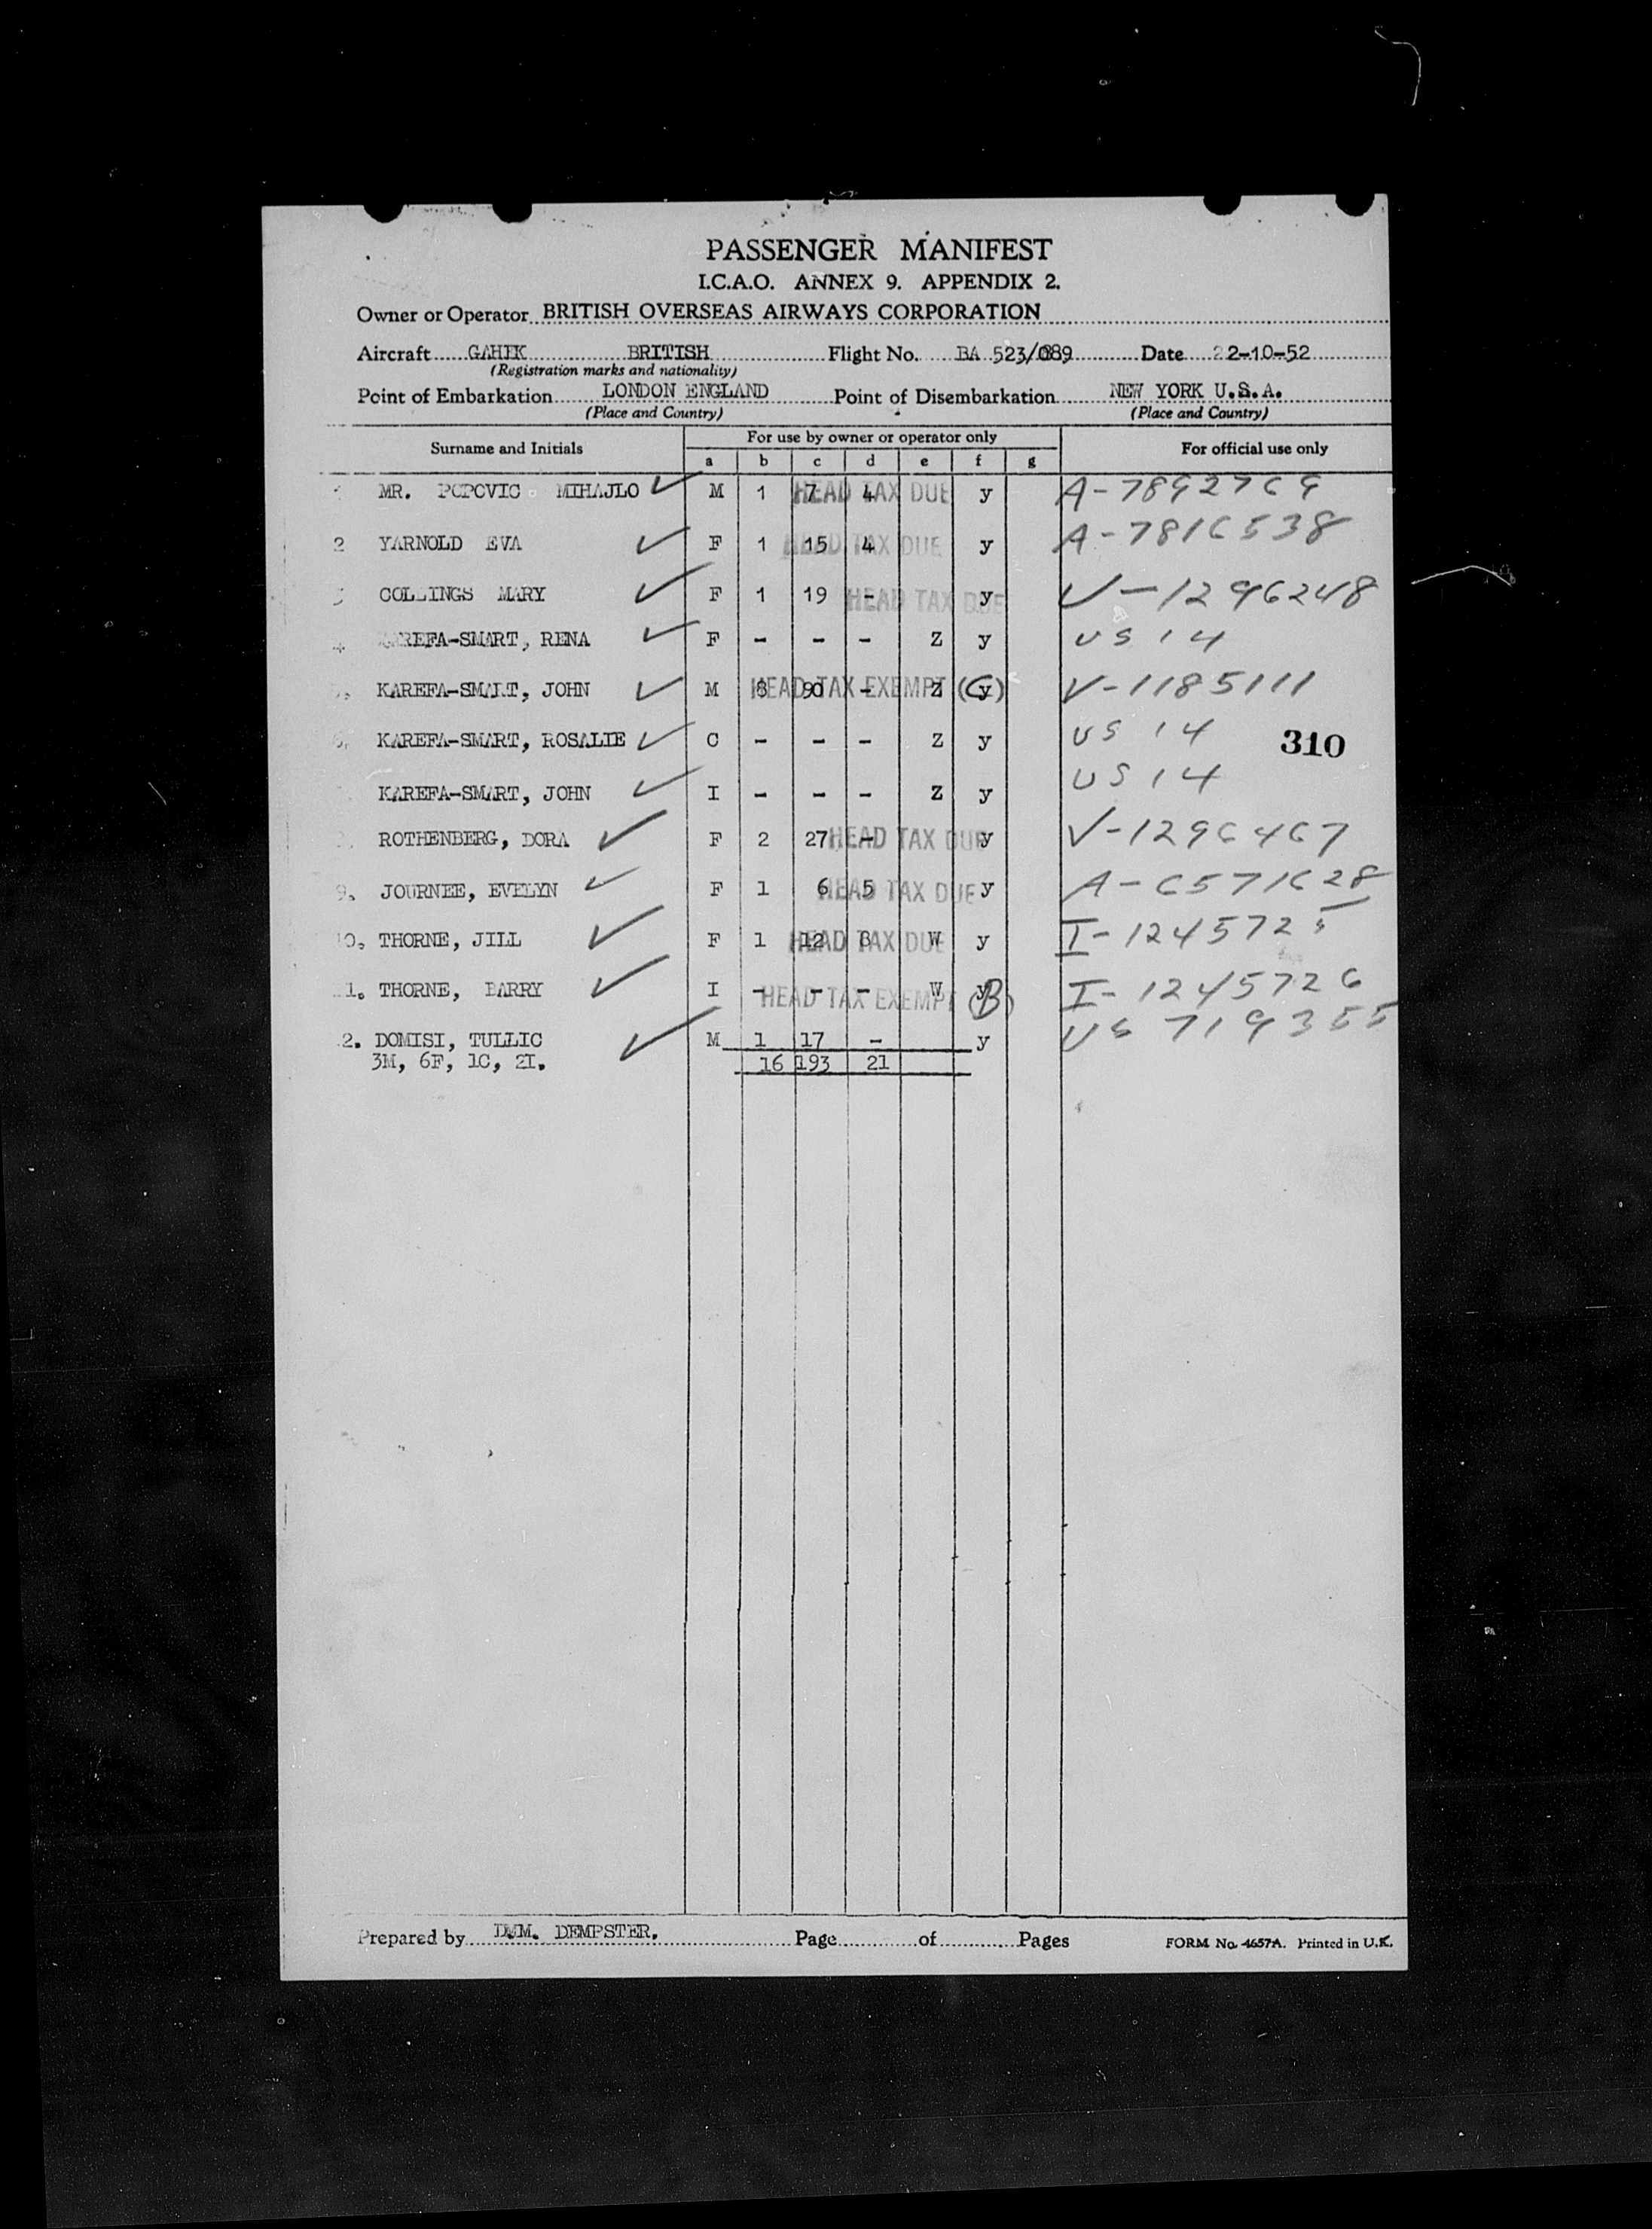 PASSENGER MANIFEST
I.C.A.O. ANNEX 9. APPENDIX 2.
Owner or Operator BRITISH OVERSEAS AIRWAYS CORPORATION
Aircraft GAHEK BRITISH Flight No. BA 523/089 Date 22-10-52
(Registration marks and nationality)
Point of Embarkation LONDON ENGLAND Point of Disembarkation NEW YORK U.S.A.
(Place and Country) (Place and Country)
Surname and Initials For use by owner or operator only For official use only
a b c d e f g
1 MR. POPOVIC MIHAJLO M 1 7 4 HEAD TAX DUE y A-7892769
2 YARNOLD EVA F 1 15 4 HEAD TAX DUE y A-7816538
3 COLLINGS MARY F 1 19 - HEAD TAX DUE y V-1296248
4 KAREFA-SMART, RENA F - - - Z y US 14
5, KAREFA-SMART, JOHN M 8 90 - Z y HEAD TAX EXEMPT (G) V-1185111
6, KAREFA-SMART, ROSALIE C - - - Z y US 14
310
KAREFA-SMART, JOHN I - - - Z y US 14
ROTHENBERG, DORA F 2 27 - HEAD TAX DUE y V-1296467
9, JOURNEE, EVELYN F 1 6 5 HEAD TAX DUE y A-6571628
10, THORNE, JILL F 1 12 8 HEAD TAX DUE W y I-1245725
11. THORNE, BARRY I - - - W y HEAD TAX EXEMPT (B) I-1245726
2. DOMISI, TULLIC M 1 17 - y US 719355
3M, 6F, 1C, 2I. 16 193 21
Prepared by D.M. DEMPSTER. Page of Pages FORM No. 4657A. Printed in U.K.